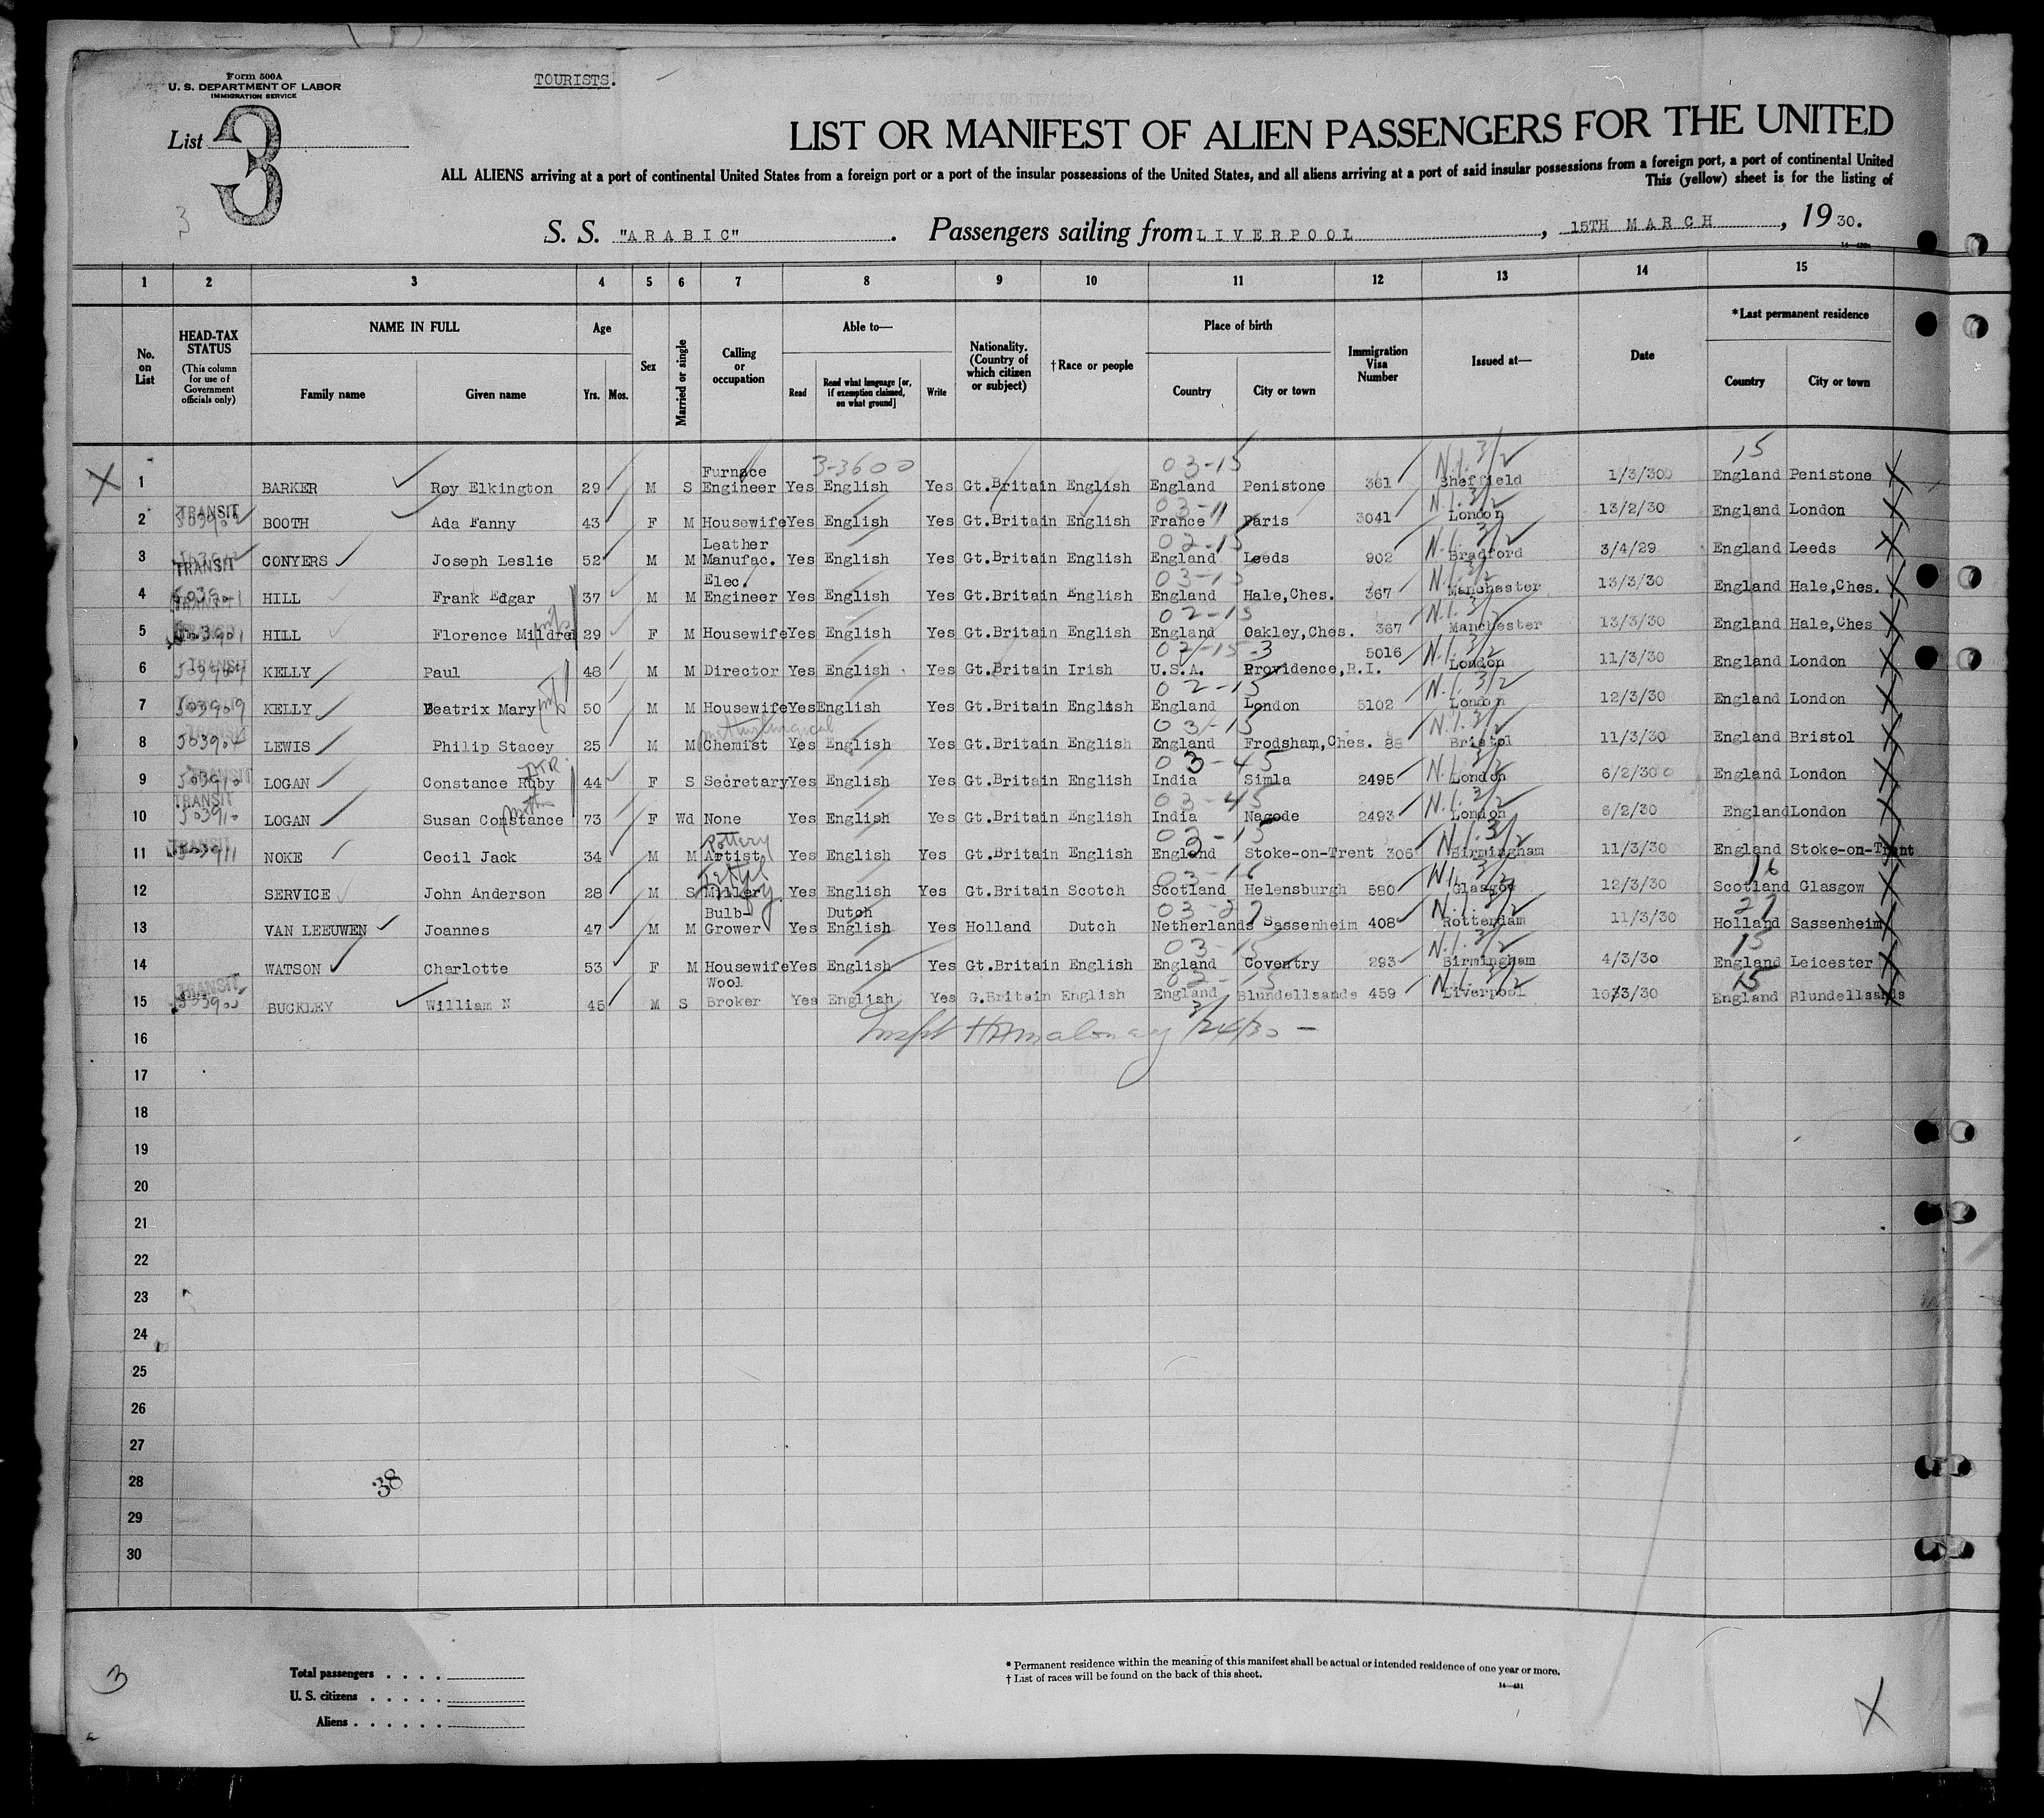 Form 500A
U. S. DEPARTMENT OF LABOR
IMMIGRATION SERVICE
TOURISTS.
List 3
3
LIST OR MANIFEST OF ALIEN PASSENGERS FOR THE UNITED
ALL ALIENS arriving at a port of continental United States from a foreign port or a port of the insular possessions of the United States, and all aliens arriving at a port of said insular possessions from a foreign port, a port of continental United
This (yellow) sheet is for the listing of
S. S. "ARABIC" . Passengers sailing from LIVERPOOL , 15TH MARCH , 1930.
1 2 3 4 5 6 7 8 9 10 11 12 13 14 15
No. on List
HEAD-TAX STATUS
(This column for use of Government officials only)
NAME IN FULL
Family name Given name
Age
Yrs. Mos.
Sex
Married or single
Calling or occupation
Able to—
Read Read what language [or, if exemption claimed, on what ground] Write
Nationality. (Country of which citizen or subject)
†Race or people
Place of birth
Country City or town
Immigration Visa Number
Issued at—
Date
*Last permanent residence
Country City or town
3-3600 03-15 N.I. 3/2 15
1 BARKER Roy Elkington 29 M S Furnace Engineer Yes English Yes Gt.Britain English England Penistone 361 Sheffield 1/3/30 England Penistone
03-11 N.I. 3/2
2 TRANSIT BOOTH Ada Fanny 43 F M Housewife Yes English Yes Gt.Britain English France Paris 3041 London 13/2/30 England London
02-15 N.I. 3/2
3 TRANSIT CONYERS Joseph Leslie 52 M M Leather Manufac. Yes English Yes Gt.Britain English England Leeds 902 Bradford 3/4/29 England Leeds
03-15 N.I. 3/2
4 TRANSIT HILL Frank Edgar 37 M M Elec. Engineer Yes English Yes Gt.Britain English England Hale,Ches. 367 Manchester 13/3/30 England Hale,Ches.
02-15 N.I. 3/2
5 HILL Florence Mildred 29 F M Housewife Yes English Yes Gt.Britain English England Oakley,Ches. 367 Manchester 13/3/30 England Hale,Ches
02-15-3 N.I. 3/2
6 TRANSIT KELLY Paul 48 M M Director Yes English Yes Gt.Britain Irish U.S.A. Providence,R.I. 5016 London 11/3/30 England London
02-15 N.I. 3/2
7 503909 KELLY Beatrix Mary 50 M M Housewife Yes English Yes Gt.Britain English England London 5102 London 12/3/30 England London
03-15 N.I. 3/2
8 503904 LEWIS Philip Stacey 25 M M Metallurgical Chemist Yes English Yes Gt.Britain English England Frodsham,Ches. 86 Bristol 11/3/30 England Bristol
03-45 N.I. 3/2
9 TRANSIT LOGAN Constance Ruby 44 F S Secretary Yes English Yes Gt.Britain English India Simla 2495 London 6/2/30 England London
03-45 N.I. 3/2
10 TRANSIT 503910 LOGAN Susan Constance mother 73 F Wd None Yes English Yes Gt.Britain English India Nagode 2493 London 6/2/30 England London
03-15 N.I. 3/2
11 TRANSIT 503911 NOKE Cecil Jack 34 M M Pottery Artist Yes English Yes Gt.Britain English England Stoke-on-Trent 306 Birmingham 11/3/30 England Stoke-on-Trent
03-16 N.I. 3/2 16
12 SERVICE John Anderson 28 M S Miller Yes English Yes Gt.Britain Scotch Scotland Helensburgh 580 Glasgow 12/3/30 Scotland Glasgow
03-27 N.I. 3/2 27
13 VAN LEEUWEN Joannes 47 M M Bulb-Grower Yes Dutch English Yes Holland Dutch Netherlands Sassenheim 408 Rotterdam 11/3/30 Holland Sassenheim
03-15 N.I. 3/2 15
14 WATSON Charlotte 53 F M Housewife Yes English Yes Gt.Britain English England Coventry 293 Birmingham 4/3/30 England Leicester
N.I. 3/2 15
15 TRANSIT BUCKLEY William N 45 M S Wool Broker Yes English Yes G.Britain English England Blundellsands 459 Liverpool 10/3/30 England Blundellsands
16 3/24/30
17
18
19
20
21
22
23
24
25
26
27
28 38
29
30
3
Total passengers
U. S. citizens
Aliens
* Permanent residence within the meaning of this manifest shall be actual or intended residence of one year or more.
† List of races will be found on the back of this sheet.
14—431